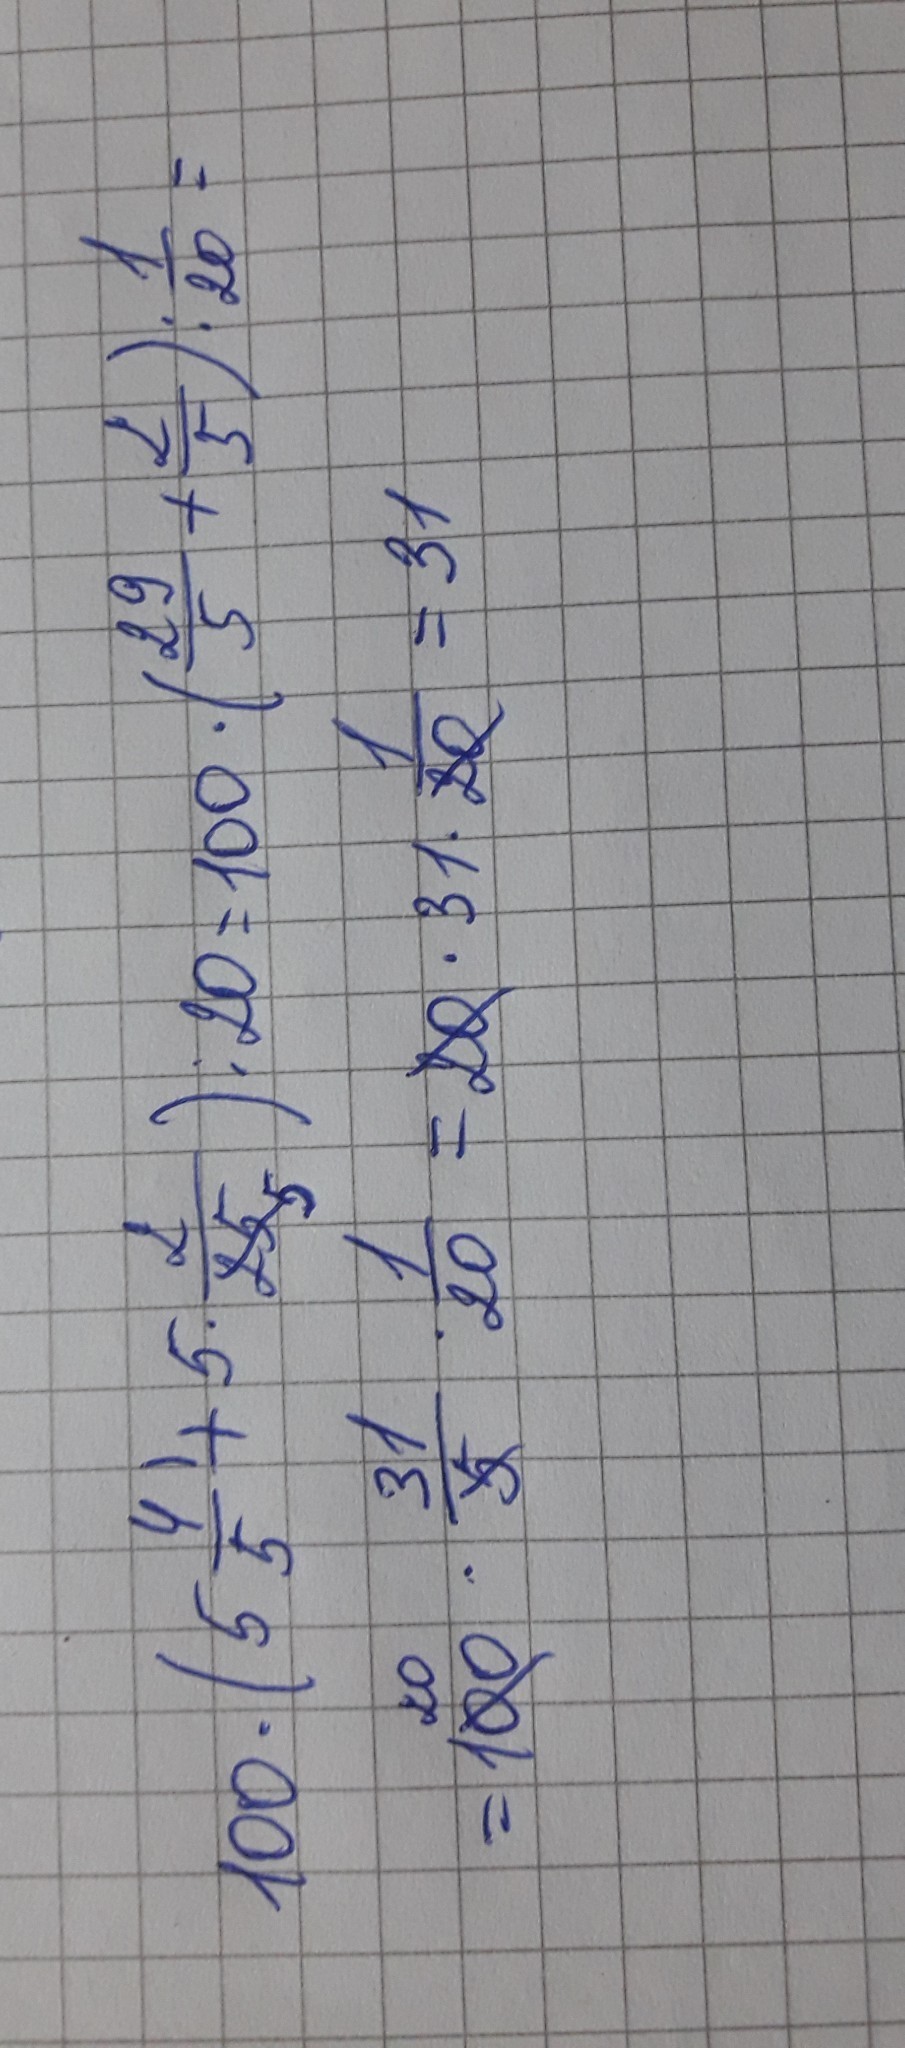 100 · (5 4/5 + 5 · 2/25 5) : 20 = 100 · (29/5 + 2/5) · 1/20 =
= 100 20 · 31/5 · 1/20 = 20 · 31 · 1/20 = 31